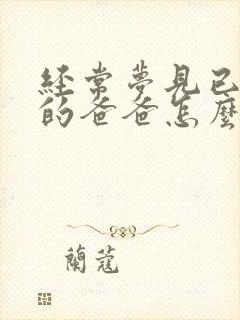 經常夢見已
的爸爸怎麼
蘭蔻